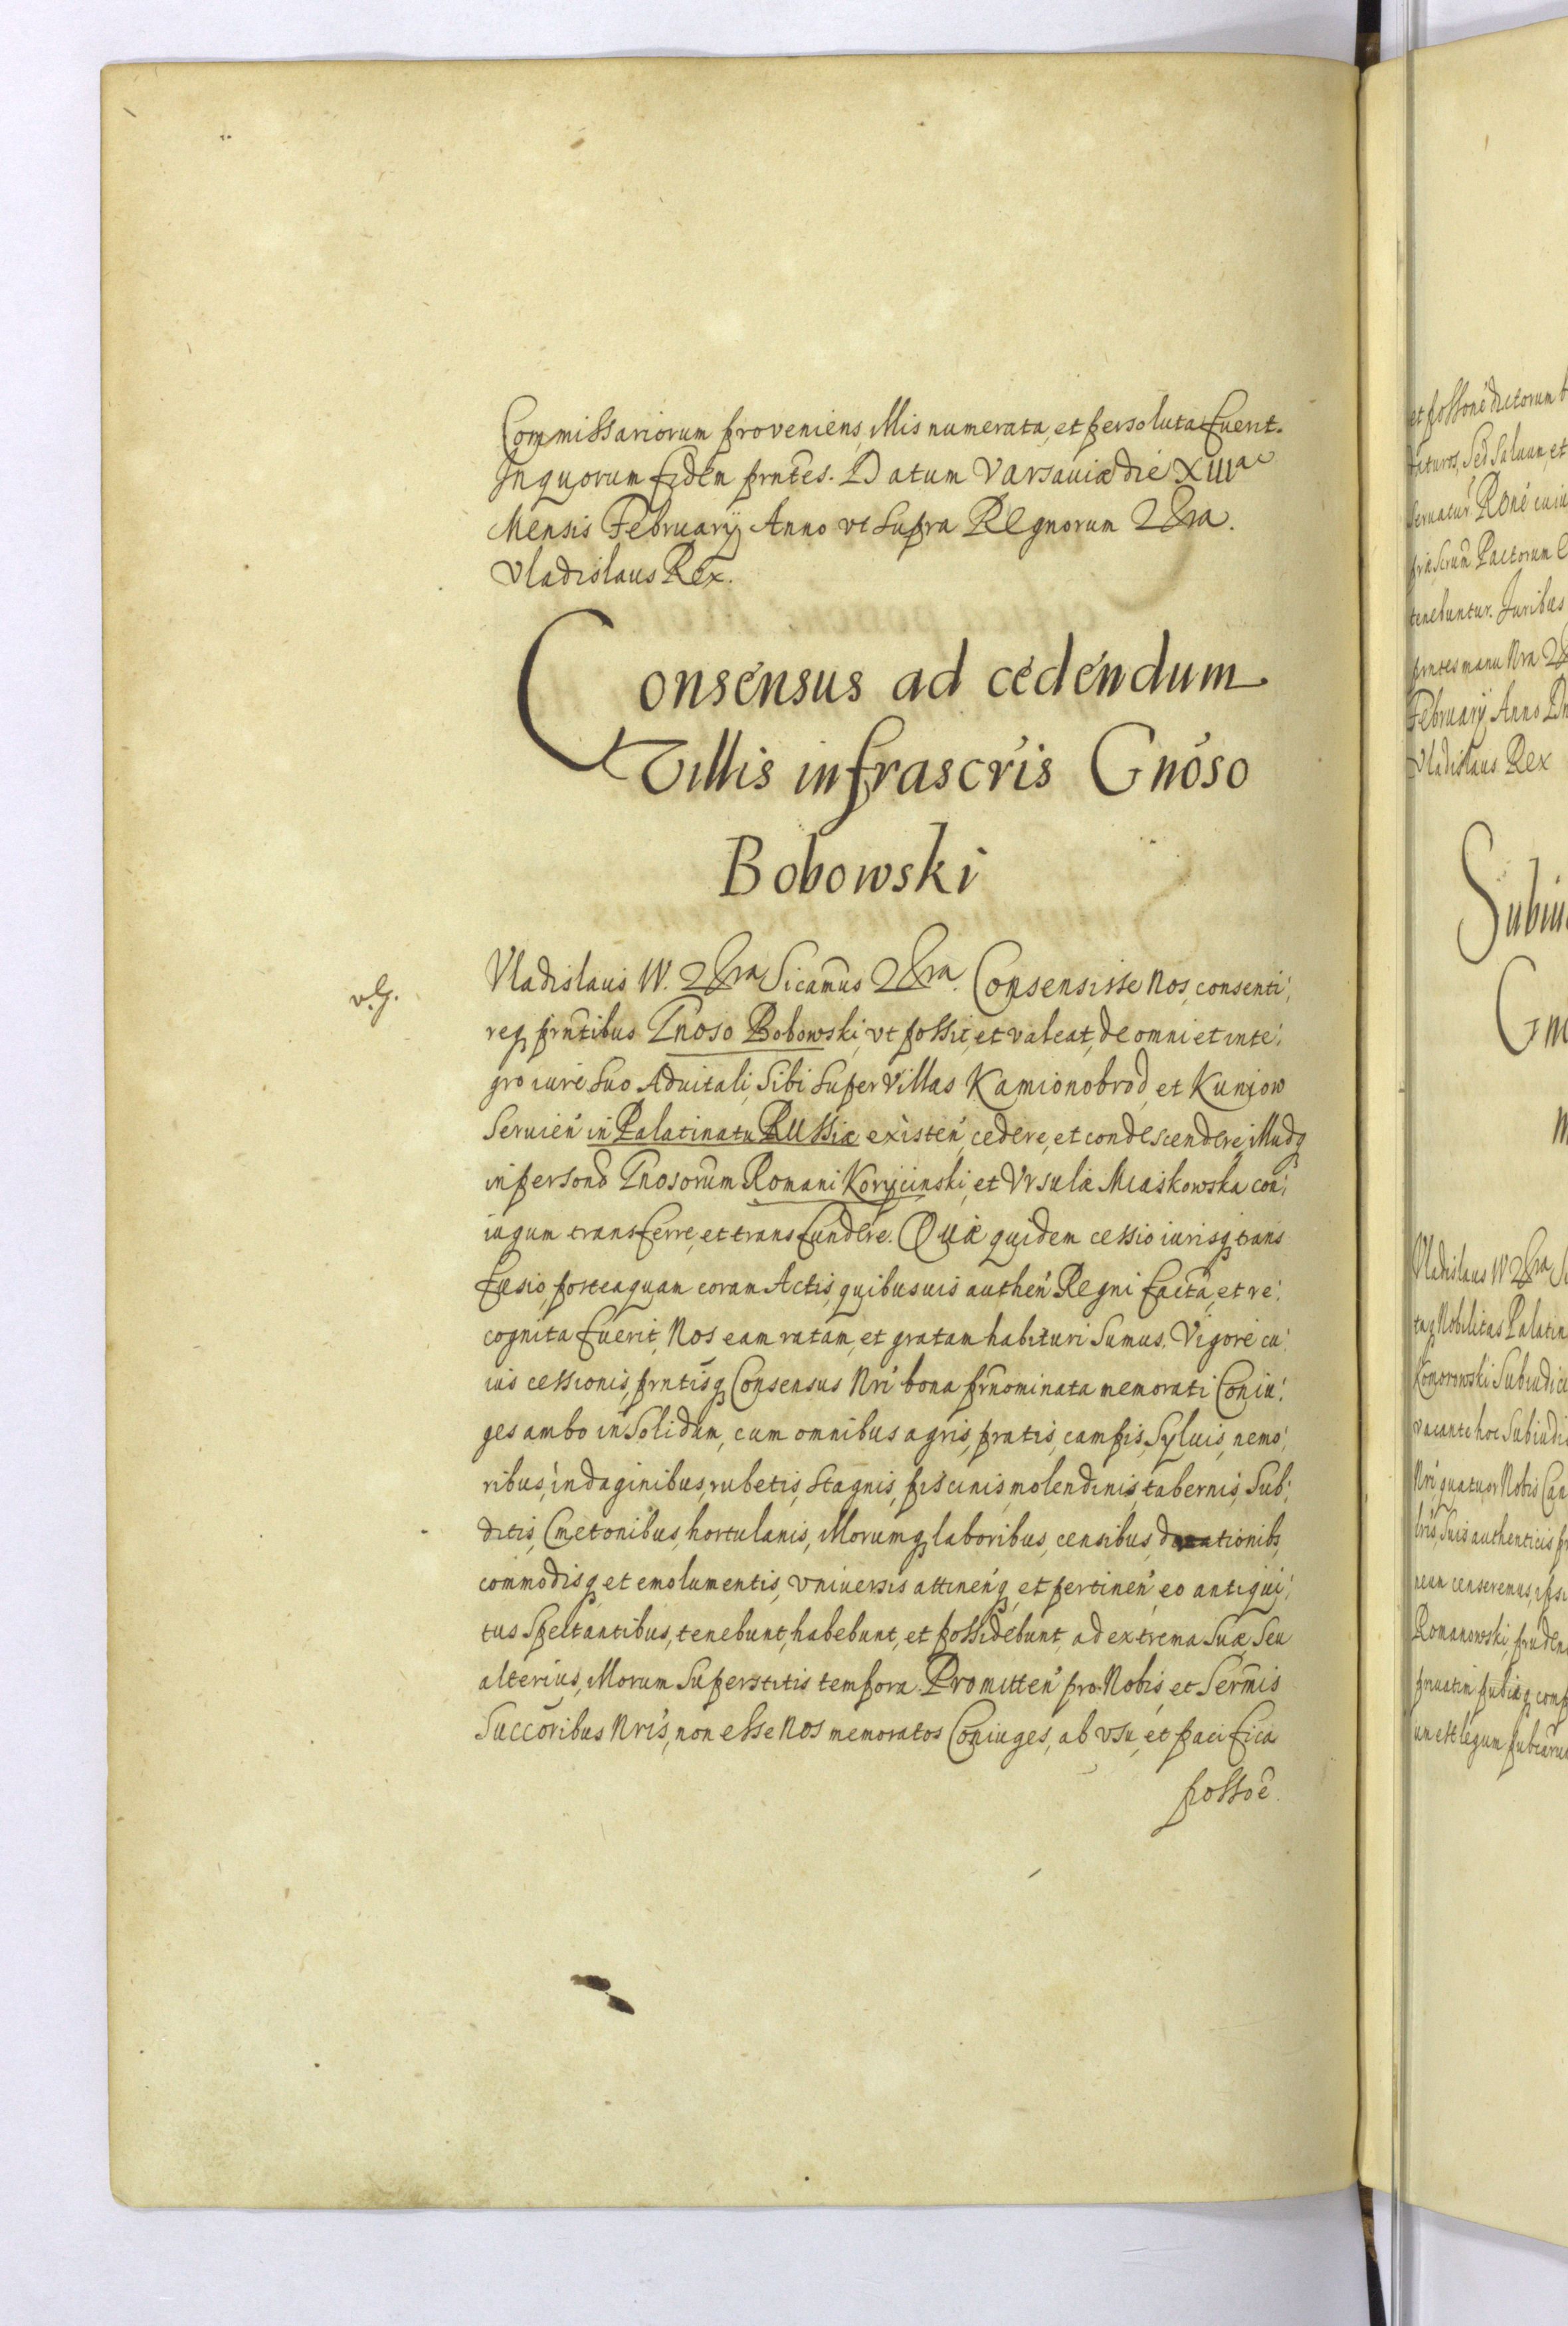 Commissariorum proveniens, illis numerata, et persoluta fuerit.
In quorum fidem prntes. Datum Varsaviæ die XIII
Mensis Februarij Anno vt supra Regnorum &ra.
Vladislaus Rex.
Consensus ad cedendum
Villis infrascris Gnoso
Bobowski
Vladislaus IV. &ra Sicamus &ra. Consensisse Nos, consenti:
req prntibus Gnoso Bobowski, vt possit, et valeat, de omni et inte:
gro iure suo Advitali, sibi super Villas Kamionobrod, et Kuniow
Seruien in Palatinatu Russiæ existen, cedere, et condescendere, illudq
in personas Gnosorum Romani Korycinski, et Vrsulæ Miaskowska con:
iugum transferre, et transfundere. Quæ quidem cessio iurisq trans
fusio, posteaquam coram Actis, quibusuis authen Regni facta, et re:
cognita fuerit, Nos eam ratam, et gratam habituri sumus. Vigore cu:
ius cessionis, prntisq Consensus Nri bona prnominata memorati Coniu:
ges ambo in solidum, cum omnibus agris, pratis, campis, Syluis, nemo:
ribus, indaginibus, rubetis, stagnis, piscinis, molendinis, tabernis, Sub:
ditis, Cmetonibus, hortulanis, illorumq laboribus, censibus, dationibs,
commodisq et emolumentis, vniuersis attinenq et pertinen, eo antiqui:
tus spectantibus, tenebunt, habebunt, et possidebunt, ad extrema suæ seu
alterius, illorum superstitis tempora. Promitten pro Nobis, et Sermis
Succoribus Nris, non esse Nos memoratos Coniuges, ab vsu, et pacifica
possoe.
et possone dictorum
daturos, Sed saluum, et
seruatur Rone
Pactorum
tenebuntur. Juribus
prntes manu Nra
Februarij Anno
Vladislaus Rex
Vladislaus IV &ra
Nobilitas Palatin
Komorowski
vacante hoc
Nri quatuor Nobis
suis authenticis
censeremus,
Romanowski,
est legum